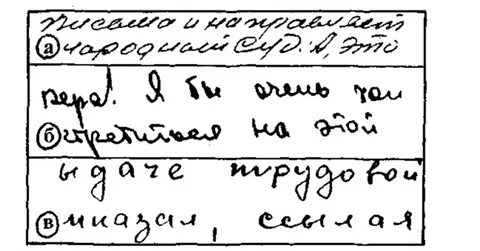 письма и направляет
а народный суд. А, это
вера! Я бы очень хоч
б стретиться на этой
ыдаче трудовой
в тказал, ссылая